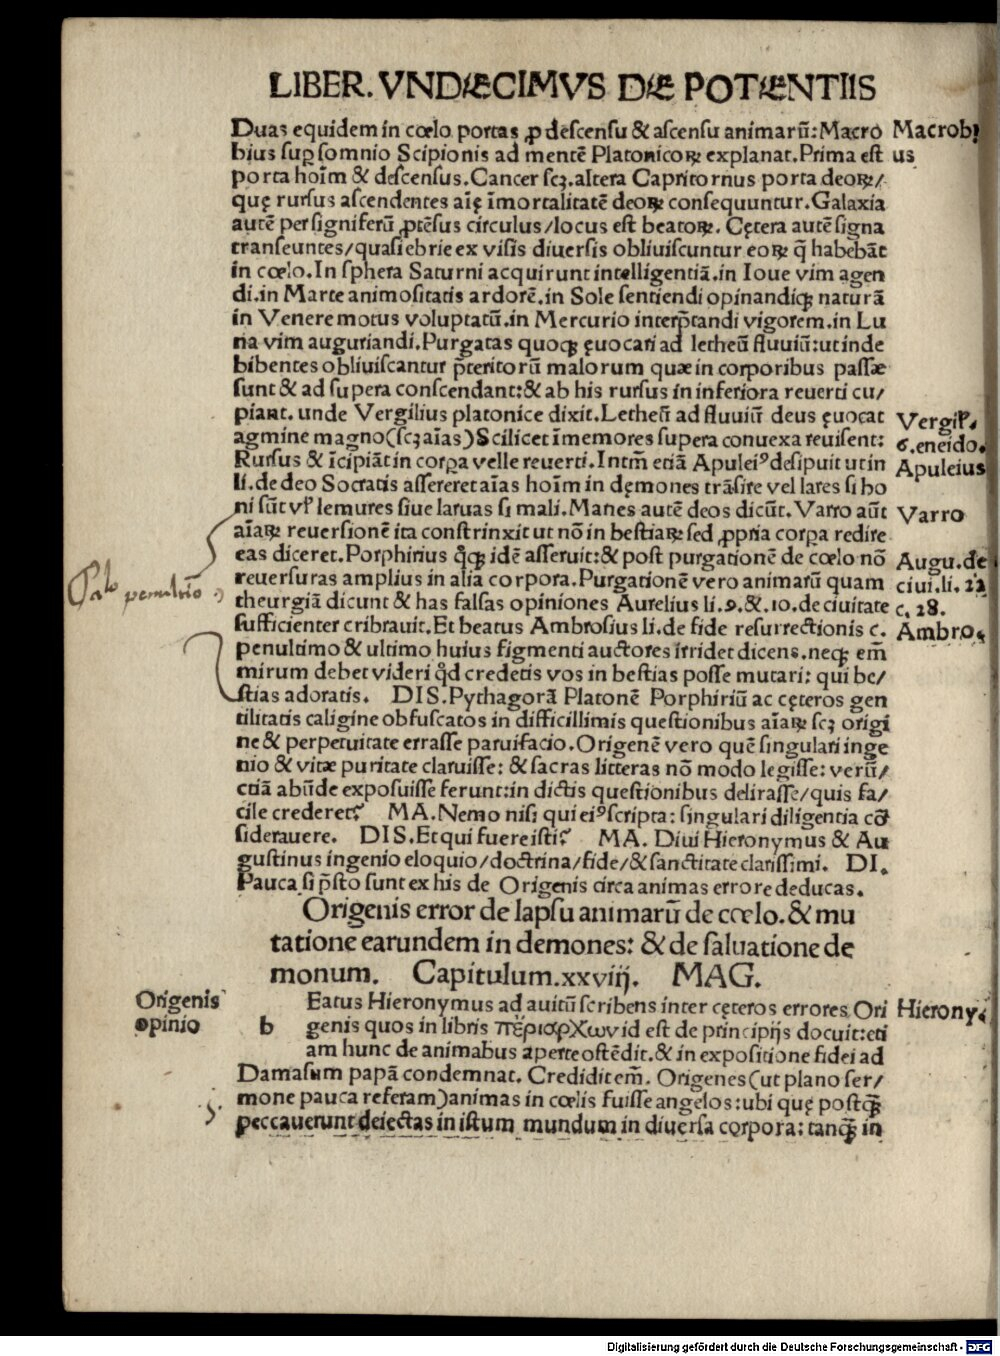 LIBER. VNDÆCIMVS DÆ POTÆNTIIS
Duas equidem in cœlo portas ꝓ descensu & ascensu animarū: Macro
Macrobi
bius suꝑ somnio Scipionis ad mentē Platonicoꝝ explanat. Prima est
us
porta hoīm & descensus. Cancer scꝫ. altera Capricornus porta deoꝝ/
quę rursus ascendentes aīę īmortalitatē deoꝝ consequuntur. Galaxia
autē per signiferū ꝓtēsus circulus/locus est beatoꝝ. Cętera autē signa
transeuntes/quasi ebrie ex visis diuersis obliuiscuntur eoꝝ q̄ habebāt
in cœlo. In sphera Saturni acquirunt intelligentiā. in Ioue vim agen
di. in Marte animositatis ardorē. in Sole sentiendi opinandiqꝫ naturā
in Venere motus voluptatū. in Mercurio interp̄tandi vigorem. in Lu
na vim auguriandi. Purgatas quoqꝫ ęuocari ad letheū fluuiū: ut inde
bibentes obliuiscantur p̄teritorū malorum quæ in corporibus passæ
sunt & ad supera conscendant: & ab his rursus in inferiora reuerti cu/
piant. unde Vergilius platonice dixit. Letheū ad fluuiū deus ęuocat
Vergil.
agmine magno (scꝫ aīas) Scilicet īmemores supera conuexa reuisent:
6. eneido.
Rursus & īcipiāt in corꝑa velle reuerti. Intm̄ etiā Apulei⁹ desipuit ut in
Apuleius
li. de deo Socratis assereret aīas hoīm in dęmones trāsire vel lares si bo
ni sūt vl̓ lemures siue laruas si mali. Manes autē deos dicūt. Varro aūt
Varro
aīaꝝ reuersionē ita constrinxit ut nō in bestiaꝝ sed ꝓpria corꝑa redire
eas diceret. Porphirius q̊qꝫ idē asseruit: & post purgationē de cœlo nō
Augu. de
reuersuras amplius in alia corpora. Purgationē vero animarū quam
ciui. li. 22
theurgiā dicunt & has falsas opiniones Aurelius li. 9. &. 10. de ciuitate
c. 28.
sufficienter cribrauit. Et beatus Ambrosius li. de fide resurrectionis c.
Ambro.
penultimo & ultimo huius figmenti auctores irridet dicens. neqꝫ em̄
mirum debet videri qd̓ credetis vos in bestias posse mutari: qui be/
stias adoratis. DIS. Pythagorā Platonē Porphiriū ac cęteros gen
tilitatis caligine obfuscatos in difficillimis questionibus aīaꝝ scꝫ origi
ne & perpetuitate errasse paruifacio. Origenē vero quē singulari inge
nio & vitæ puritate claruisse: & sacras litteras nō modo legisse: verū/
etiā abūde exposuisse ferunt: in dictis questionibus delirasse/quis fa/
cile crederet? MA. Nemo nisi qui ei⁹ scripta: singulari diligentia cō
siderauere. DIS. Et qui fuere isti? MA. Diui Hieronymus & Au
gustinus ingenio eloquio/doctrina/fide/& sanctitate clarissimi. DI.
Pauca si p̄sto sunt ex his de Origenis circa animas errore deducas.
Origenis error de lapsu animarū de cœlo. & mu
tatione earundem in demones: & de saluatione de
monum. Capitulum. xxviij. MAG.
Origenis
opinio
b
Eatus Hieronymus ad auitū scribens inter cęteros errores Ori
Hierony.
genis quos in libris πέριαρχων id est de principijs docuit: eti
am hunc de animabus aperte ostēdit. & in expositione fidei ad
Damasum papā condemnat. Credidit em̄. Origenes (ut plano ser/
mone pauca referam) animas in cœlis fuisse angelos: ubi quę postqꝫ̄
peccauerunt deiectas in istum mundum in diuersa corpora: tanqꝫ̄ in
Digitalisierung gefördert durch die Deutsche Forschungsgemeinschaft - DFG